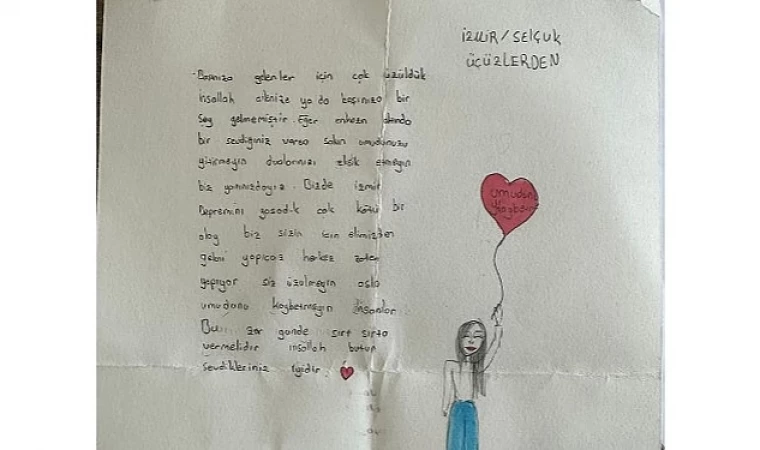 İZMİR/SELÇUK
ÜÇÜZLERDEN
Başınıza gelenler için çok üzüldük
inşallah ailenize ya da başınıza bir
şey gelmemiştir. Eğer enkazın altında
bir sevdiğiniz varsa sakın umudunuzu
yitirmeyin dualarınızı eksik etmeyin
biz yanınızdayız. Bizde izmir
Depremini yaşadık çok kötü bir
olay biz sizin için elimizden
geleni yapıcaz herkez zaten
yapıyor siz üzülmeyin asla
umudunu kaybetmeyin insanlar
Bu zor günde sırt sırta
vermelidir inşallah bütün
sevdikleriniz iyidir.
umudunu